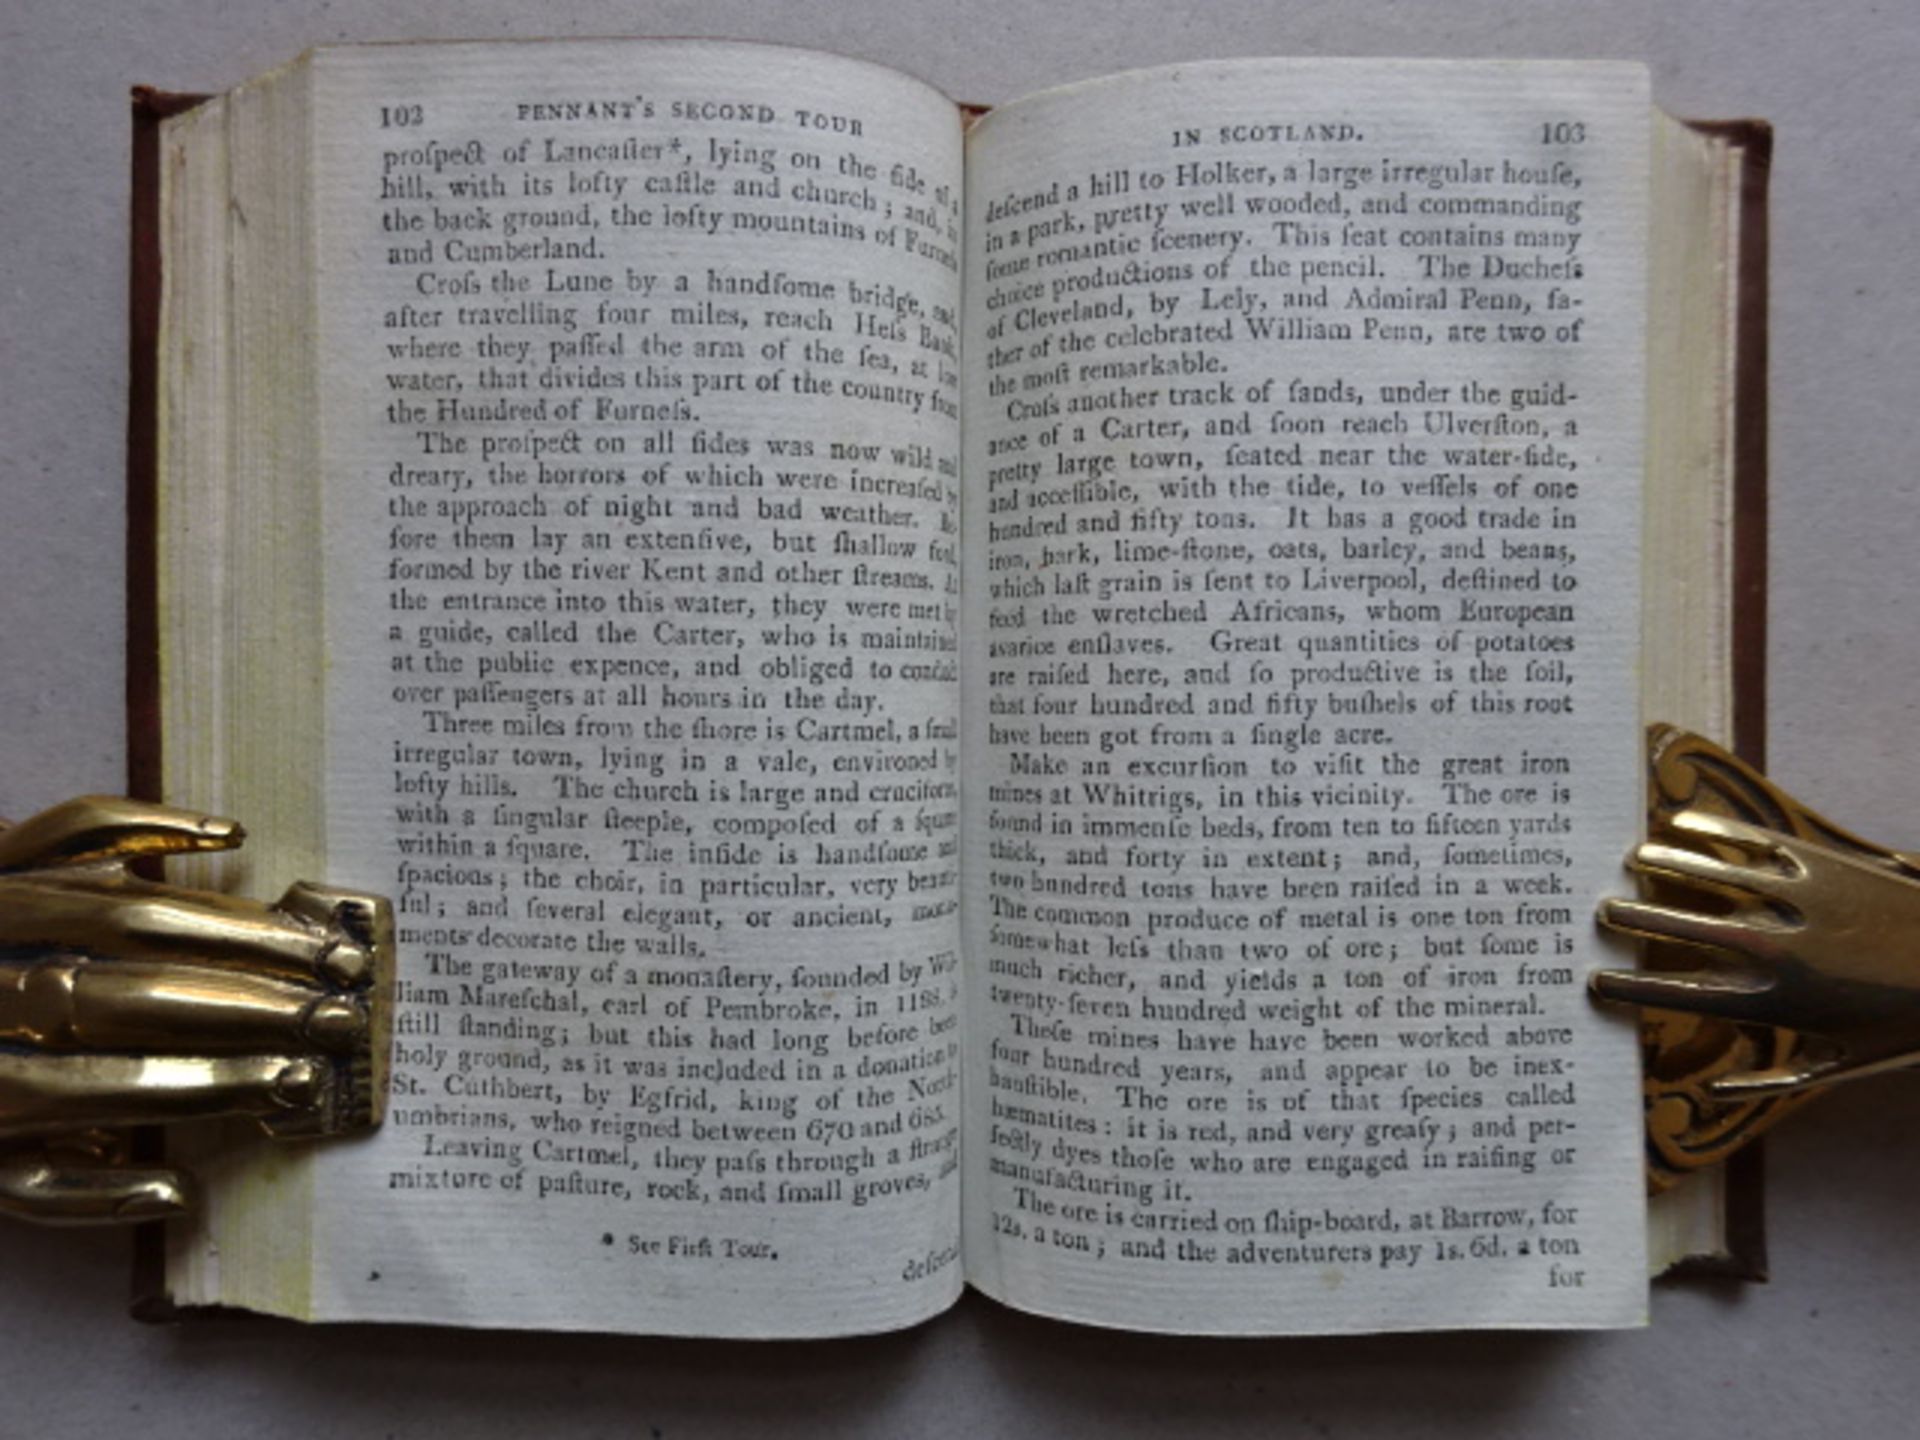 102 PENNANT'S SECOND TOUR
proſpect of Lancaſter*, lying on the ſide of a
hill, with its lofty caſtle and church; and, in
the back ground, the lofty mountains of Furneſs
and Cumberland.
Croſs the Lune by a handſome bridge, and,
after travelling four miles, reach Heſs Bank,
where they paſſed the arm of the ſea, at low
water, that divides this part of the country from
the Hundred of Furneſs.
The proſpect on all ſides was now wild and
dreary, the horrors of which were increaſed by
the approach of night and bad weather. Be-
fore them lay an extenſive, but ſhallow ford,
formed by the river Kent and other ſtreams. At
the entrance into this water, they were met by
a guide, called the Carter, who is maintained
at the public expence, and obliged to conduct
over paſſengers at all hours in the day.
Three miles from the ſhore is Cartmel, a ſmall
irregular town, lying in a vale, environed by
lofty hills. The church is large and cruciform,
with a ſingular ſteeple, compoſed of a ſquare
within a ſquare. The inſide is handſome and
ſpacious; the choir, in particular, very beauti-
ful; and ſeveral elegant, or ancient, monu-
ments decorate the walls.
The gateway of a monaſtery, founded by Wil-
liam Mareſchal, earl of Pembroke, in 1188, is
ſtill ſtanding; but this had long before been
holy ground, as it was included in a donation to
St. Cuthbert, by Egfrid, king of the North-
umbrians, who reigned between 670 and 685.
Leaving Cartmel, they paſs through a ſtrange
mixture of paſture, rock, and ſmall groves, and
* See Firſt Tour.
deſcend
IN SCOTLAND. 103
deſcend a hill to Holker, a large irregular houſe,
in a park, pretty well wooded, and commanding
ſome romantic ſcenery. This ſeat contains many
choice productions of the pencil. The Ducheſs
of Cleveland, by Lely, and Admiral Penn, fa-
ther of the celebrated William Penn, are two of
the moſt remarkable.
Croſs another track of ſands, under the guid-
ance of a Carter, and ſoon reach Ulverſton, a
pretty large town, ſeated near the water-ſide,
and acceſſible, with the tide, to veſſels of one
hundred and fifty tons. It has a good trade in
iron, bark, lime-ſtone, oats, barley, and beans,
which laſt grain is ſent to Liverpool, deſtined to
feed the wretched Africans, whom European
avarice enſlaves. Great quantities of potatoes
are raiſed here, and ſo productive is the ſoil,
that four hundred and fifty buſhels of this root
have been got from a ſingle acre.
Make an excurſion to viſit the great iron
mines at Whitrigs, in this vicinity. The ore is
found in immenſe beds, from ten to fifteen yards
thick, and forty in extent; and, ſometimes,
two hundred tons have been raiſed in a week.
The common produce of metal is one ton from
ſomewhat leſs than two of ore; but ſome is
much richer, and yields a ton of iron from
twenty-ſeven hundred weight of the mineral.
Theſe mines have have been worked above
four hundred years, and appear to be inex-
hauſtible. The ore is of that ſpecies called
hæmatites: it is red, and very greaſy; and per-
fectly dyes thoſe who are engaged in raiſing or
manufacturing it.
The ore is carried on ſhip-board, at Barrow, for
12s. a ton; and the adventurers pay 1s. 6d. a ton
for